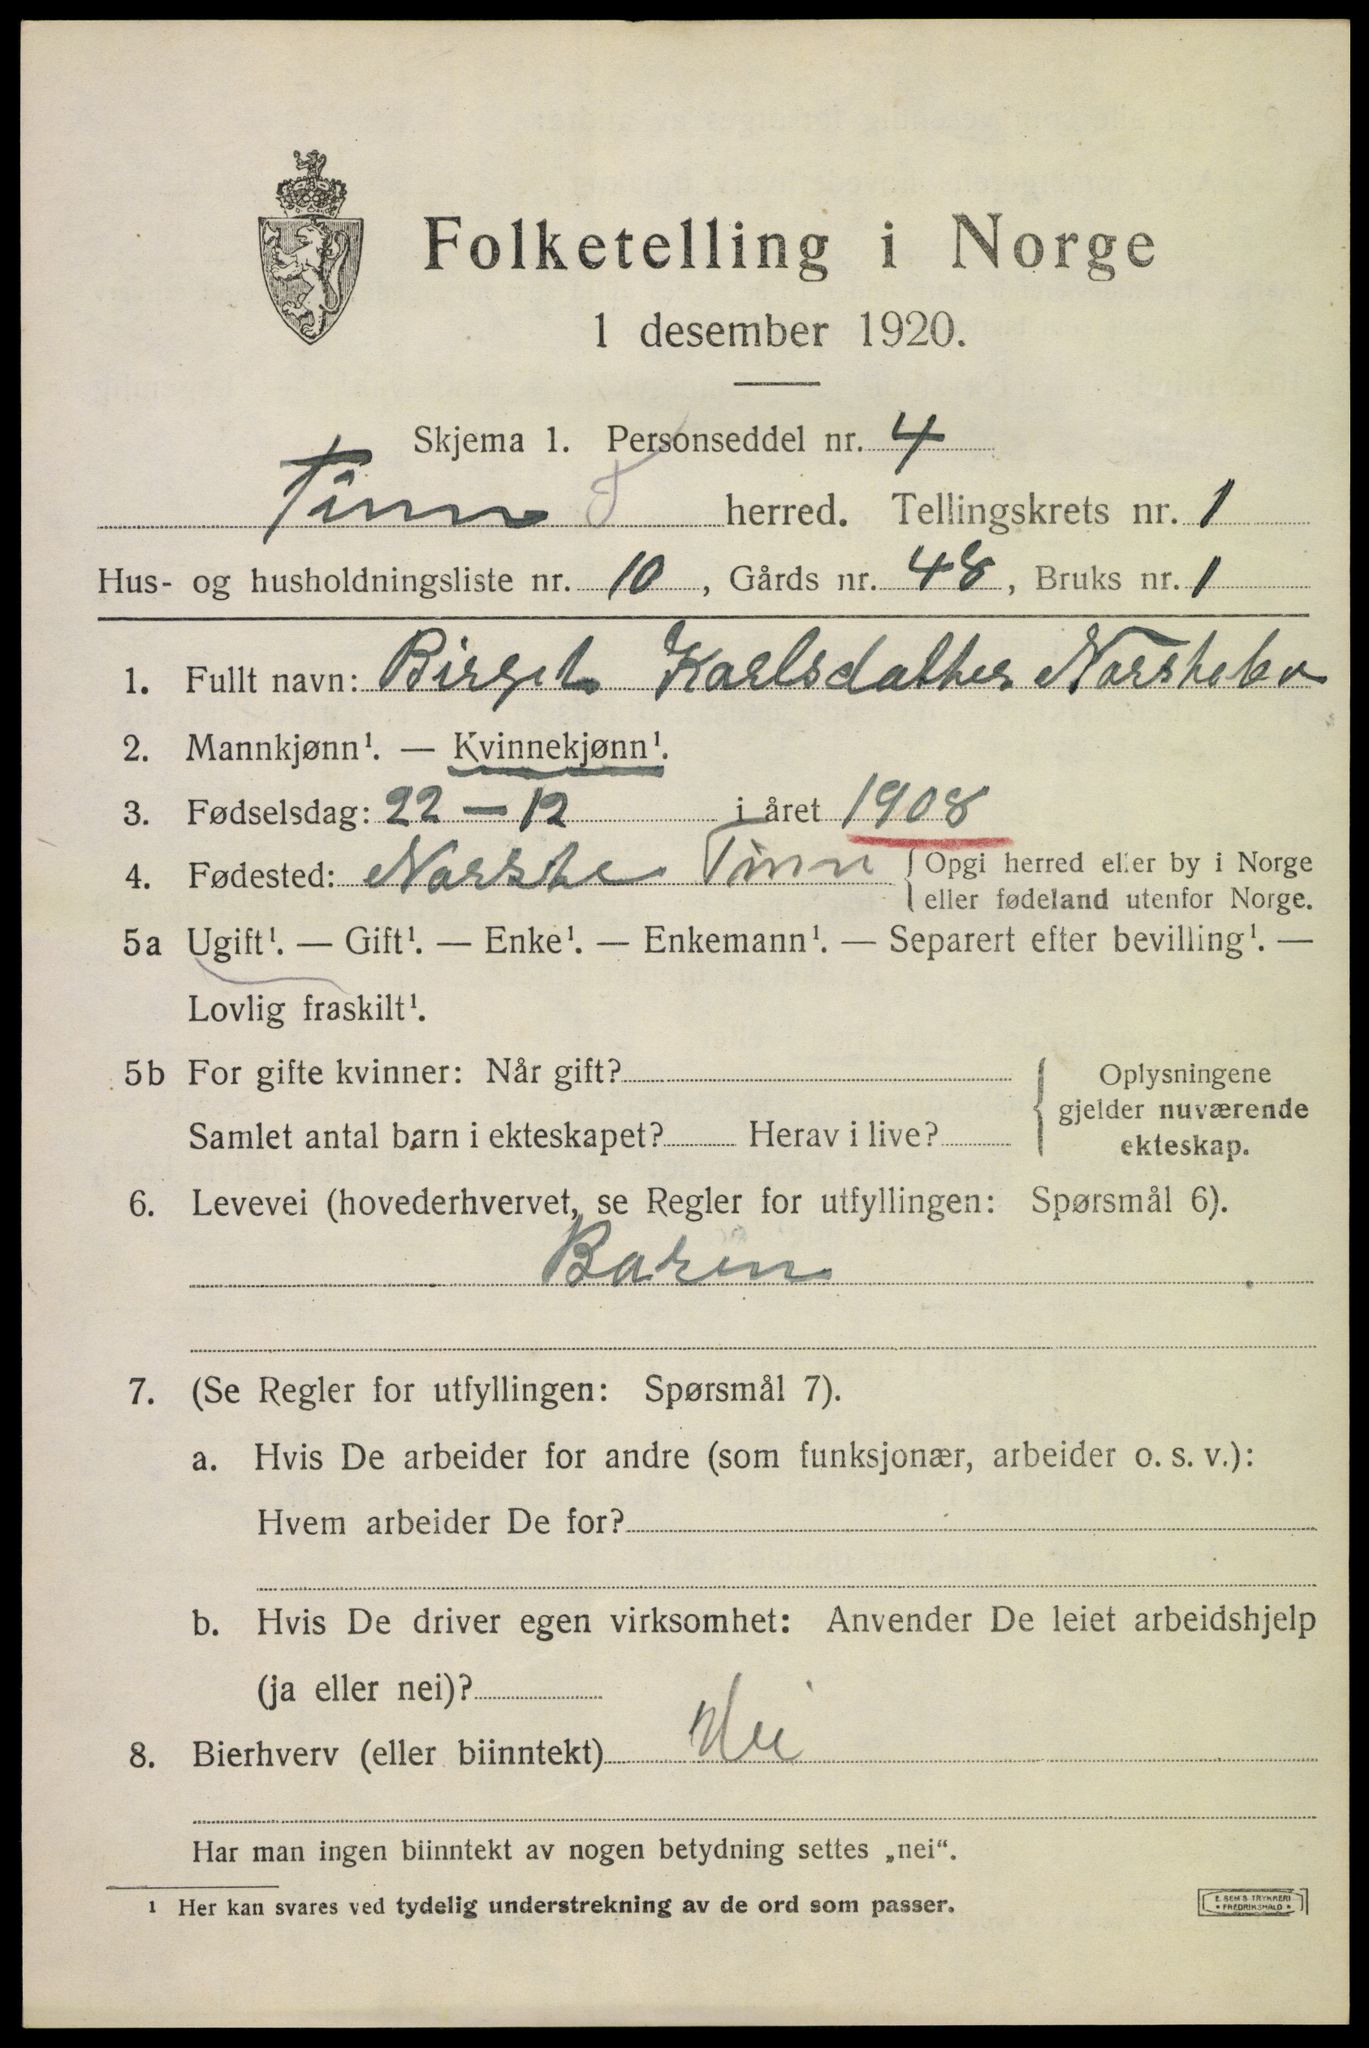 Folketelling i Norge
1 desember 1920.
Skjema 1. Personseddel nr. 4
Tinn herred. Tellingskrets nr. 1
Hus- og husholdningsliste nr. 10, Gårds nr. 48, Bruks nr. 1
1. Fullt navn: Birget Karlsdatter
2. Mannkjønn¹. — Kvinnekjønn¹.
3. Fødselsdag: 22 – 12 i året 1908
4. Fødested: Tinn {Opgi herred eller by i Norge
eller fødeland utenfor Norge.
5a Ugift¹. — Gift¹. — Enke¹. — Enkemann¹. — Separert efter bevilling¹. —
Lovlig fraskilt¹.
5b For gifte kvinner: Når gift?
Samlet antal barn i ekteskapet? Herav i live?
Oplysningene
gjelder nuværende
ekteskap.
6. Levevei (hovederhvervet, se Regler for utfyllingen: Spørsmål 6).
Baren
7. (Se Regler for utfyllingen: Spørsmål 7).
a. Hvis De arbeider for andre (som funksjonær, arbeider o. s. v.):
Hvem arbeider De for?
b. Hvis De driver egen virksomhet: Anvender De leiet arbeidshjelp
(ja eller nei)?
8. Bierhverv (eller biinntekt) Nei
Har man ingen biinntekt av nogen betydning settes „nei“.
¹ Her kan svares ved tydelig understrekning av de ord som passer.
E. SEM'S TRYKKERI
* FREDRIKSHALD *